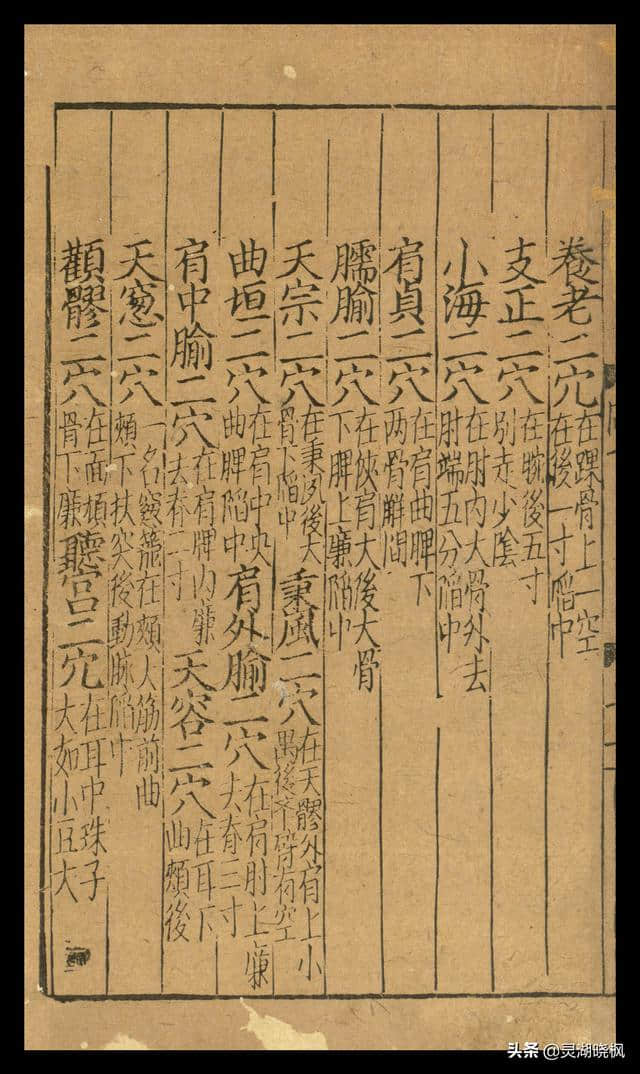 養老二穴在踝骨上一空在後一寸陷中
支正二穴在腕後五寸别走少陰
小海二穴在肘内大骨外去肘端五分陷中
肩貞二穴在肩曲脾下两骨解間
臑腧二穴在俠肩大後大骨下脾上廉陷中
天宗二穴在秉風後大骨下陷中秉風二穴在天髎外肩上小髃後齐臂有空
曲垣二穴在肩中央曲脾陷中肩外腧二穴在肩肘上廉去脊三寸
肩中腧二穴在肩脾内廉去脊二寸天容二穴在耳下曲頰後
天窓二穴一名窓籠在頰大筋前曲頰下扶突後動脉陷中
顴髎二穴在面頄骨下廉聽宫二穴在耳中珠子大如小豆大
头条 @灵湖晓枫